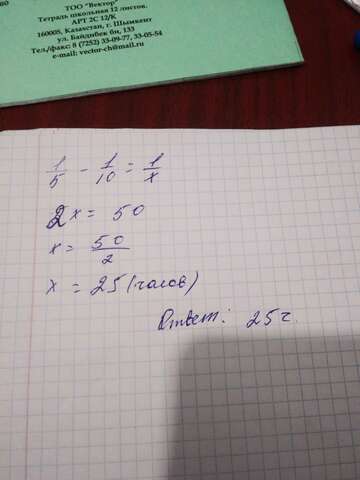 ТОО "Вектор"
Тетрадь школьная 12 листов.
АРТ 2С 12/К
160005, Казахстан, г. Шымкент
ул. Байдибек би, 133
Тел./факс: 8 (7252) 33-09-77, 33-05-54
e-mail: vector-ch@mail.ru
1/5 - 1/10 = 1/x
2x = 50
x = 50/2
x = 25 (часов)
Ответ: 25 ч.